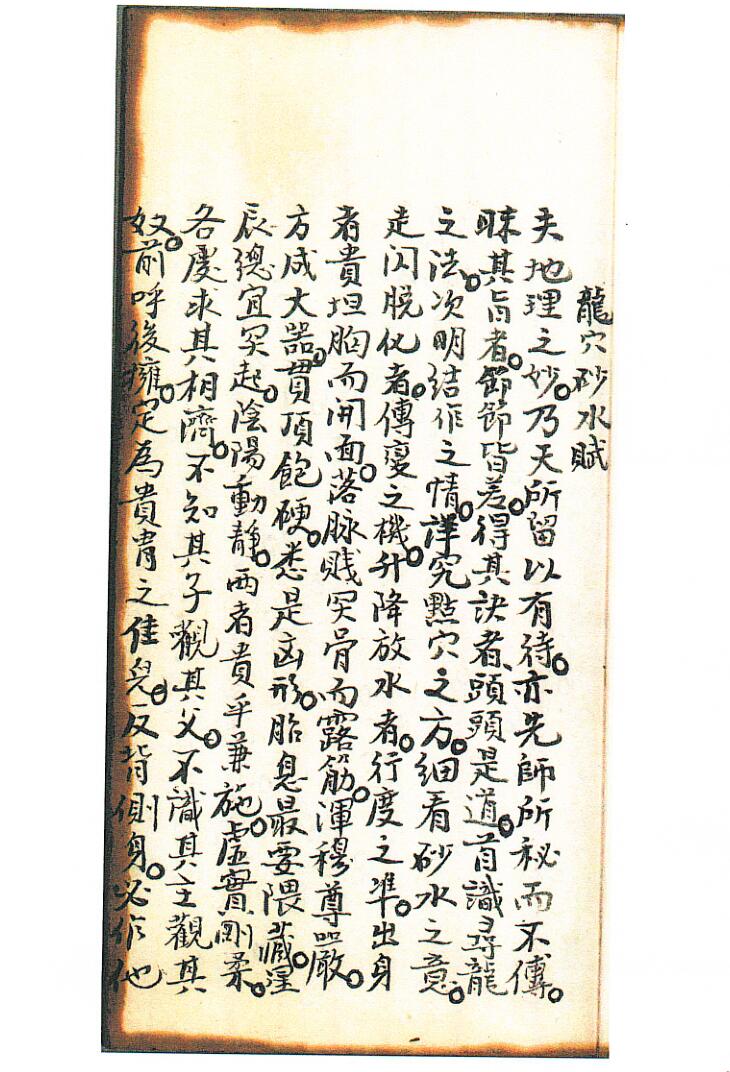 龍穴砂水賦
夫地理之妙。乃天所留以有待。亦先師所秘而不傳。
昧其旨者。節節皆差。得其訣者、頭頭是道。首識尋龍
之法。次明結作之情。詳究點穴之方。細看砂水之意。
走閃脫化者。傳變之機。升降放水者。行度之準。出身
者貴坦胸而開面。落脉賤突骨而露筋。渾穆尊嚴。
方成大器。貫頂飽硬。悉是凶形。胎息最要隈藏。星
辰總宜突起。陰陽動靜。两者貴乎兼施。虛實剛柔。
各處求其相濟。不知其子觀其父。不識其主觀其
奴。前呼後擁。定為貴胄之佳兒。反背側身。必作他